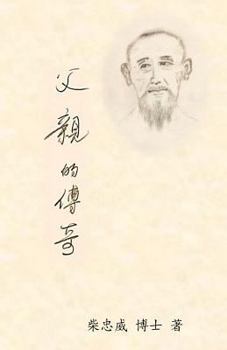 父親的傳奇
柴忠威 博士 著